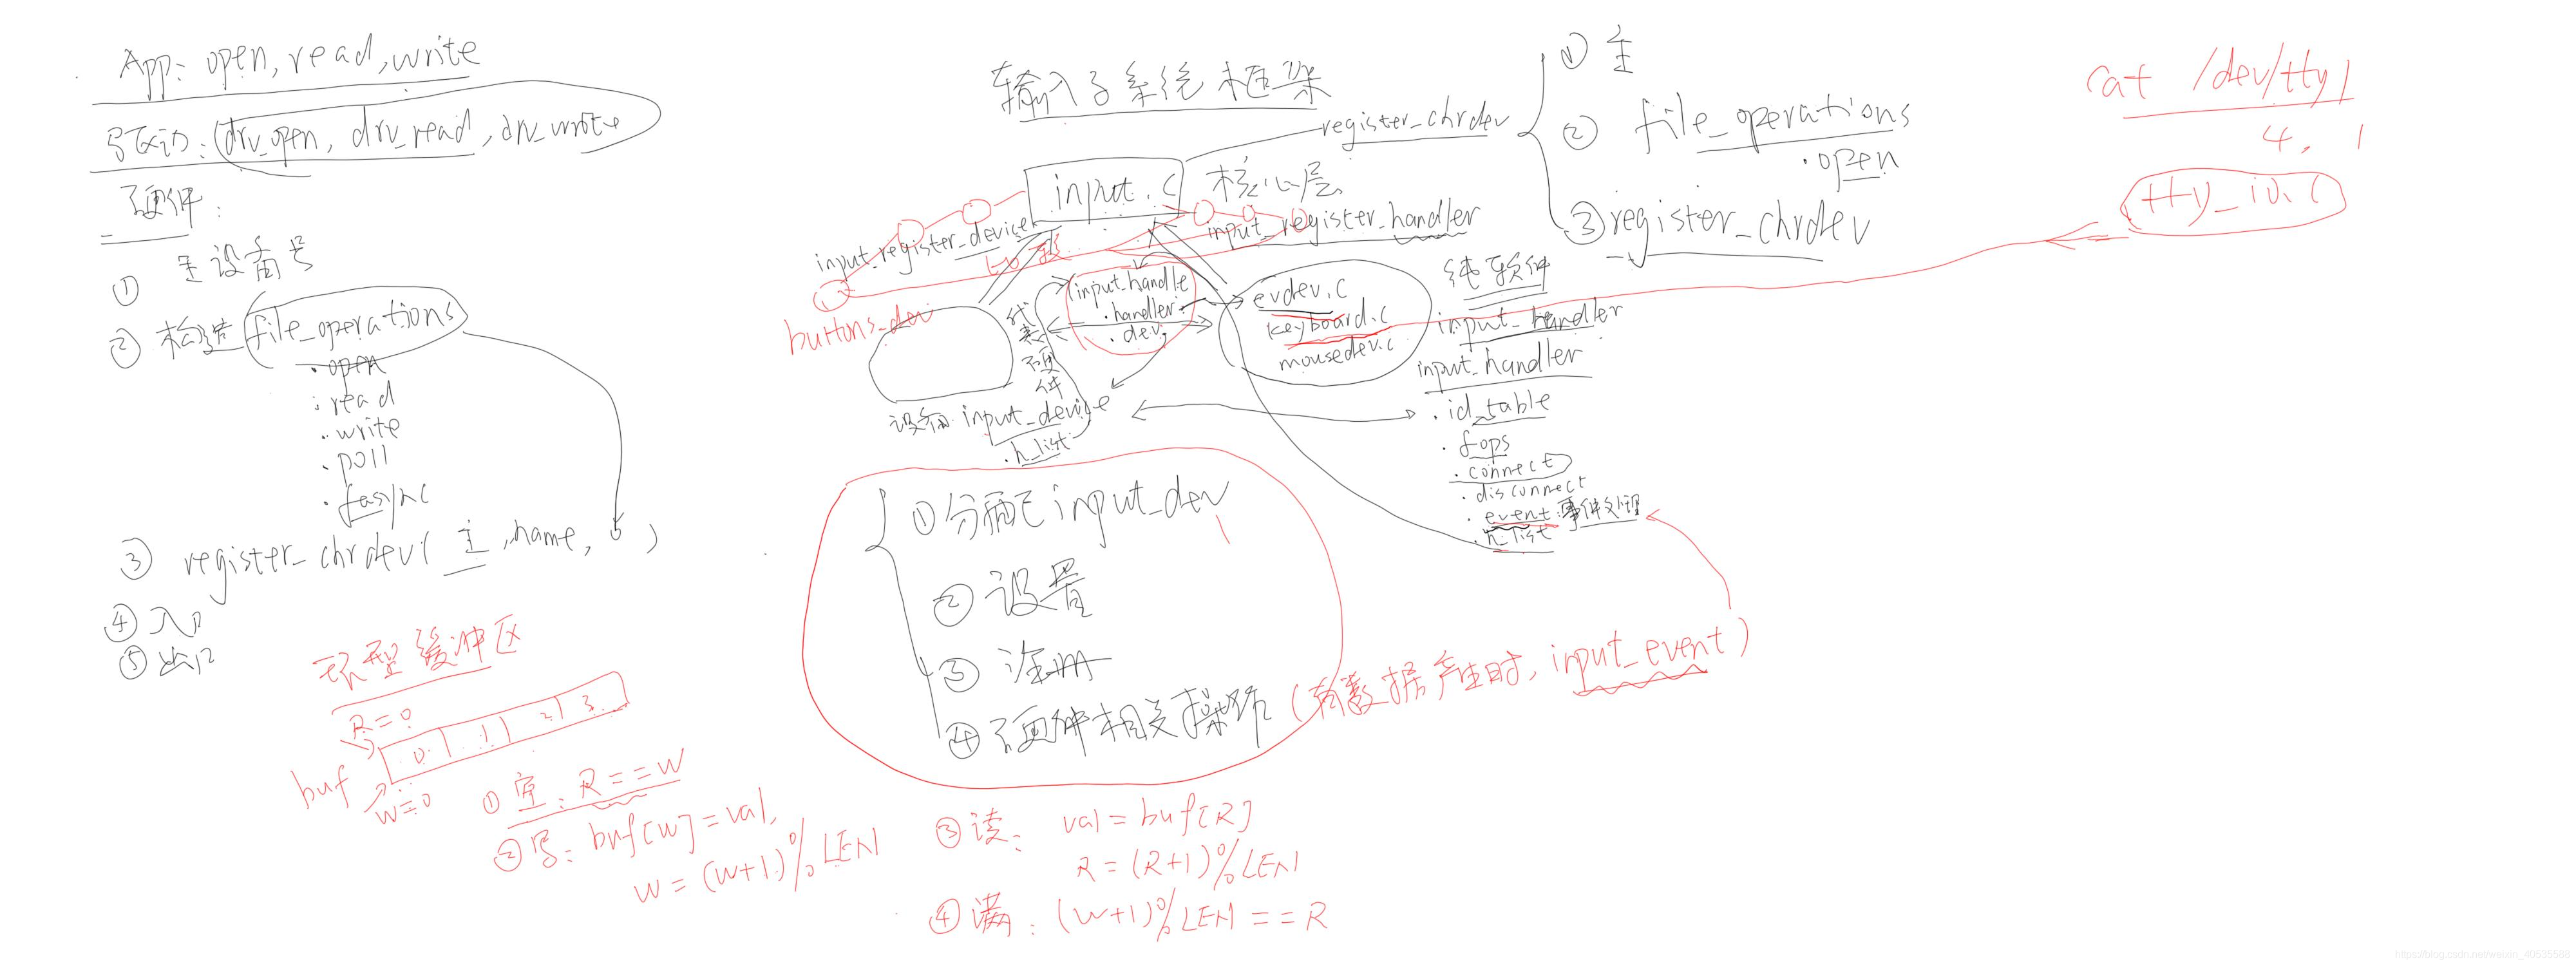 App: open, read, write
写驱动: (drv_open, drv_read, drv_write
硬件:
① 主设备号
② 构造 file_operations
.open
.read
.write
.poll
.fasync
③ register_chrdev( 主, name, )
④ 入口
⑤ 出口
环型缓冲区
R=0
0 1 2 3
buf
W=0
① 空: R==W
② 写: buf[W]=val,
W=(W+1)%LEN
③ 读: val=buf[R]
R=(R+1)%LEN
④ 满: (W+1)%LEN==R
输入子系统框架
input.c 核心层
register_chrdev
① 主
② file_operations
.open
③ register_chrdev
input_register_device
input_register_handler
比较
buttons_dev
input_handle
.handler
.dev
代表硬件
evdev.c
keyboard.c
mousedev.c
纯软件
input_handler
input_handler
.id_table
.fops
.connect
.disconnect
.event: 事件处理
.h_list
设备: input_device
.h_list
① 分配 input_dev
② 设置
③ 注册
④ 硬件相关操作 (有数据产生时, input_event)
cat /dev/tty1
4, 1
tty_io.c
https://blog.csdn.net/weixin_40535588